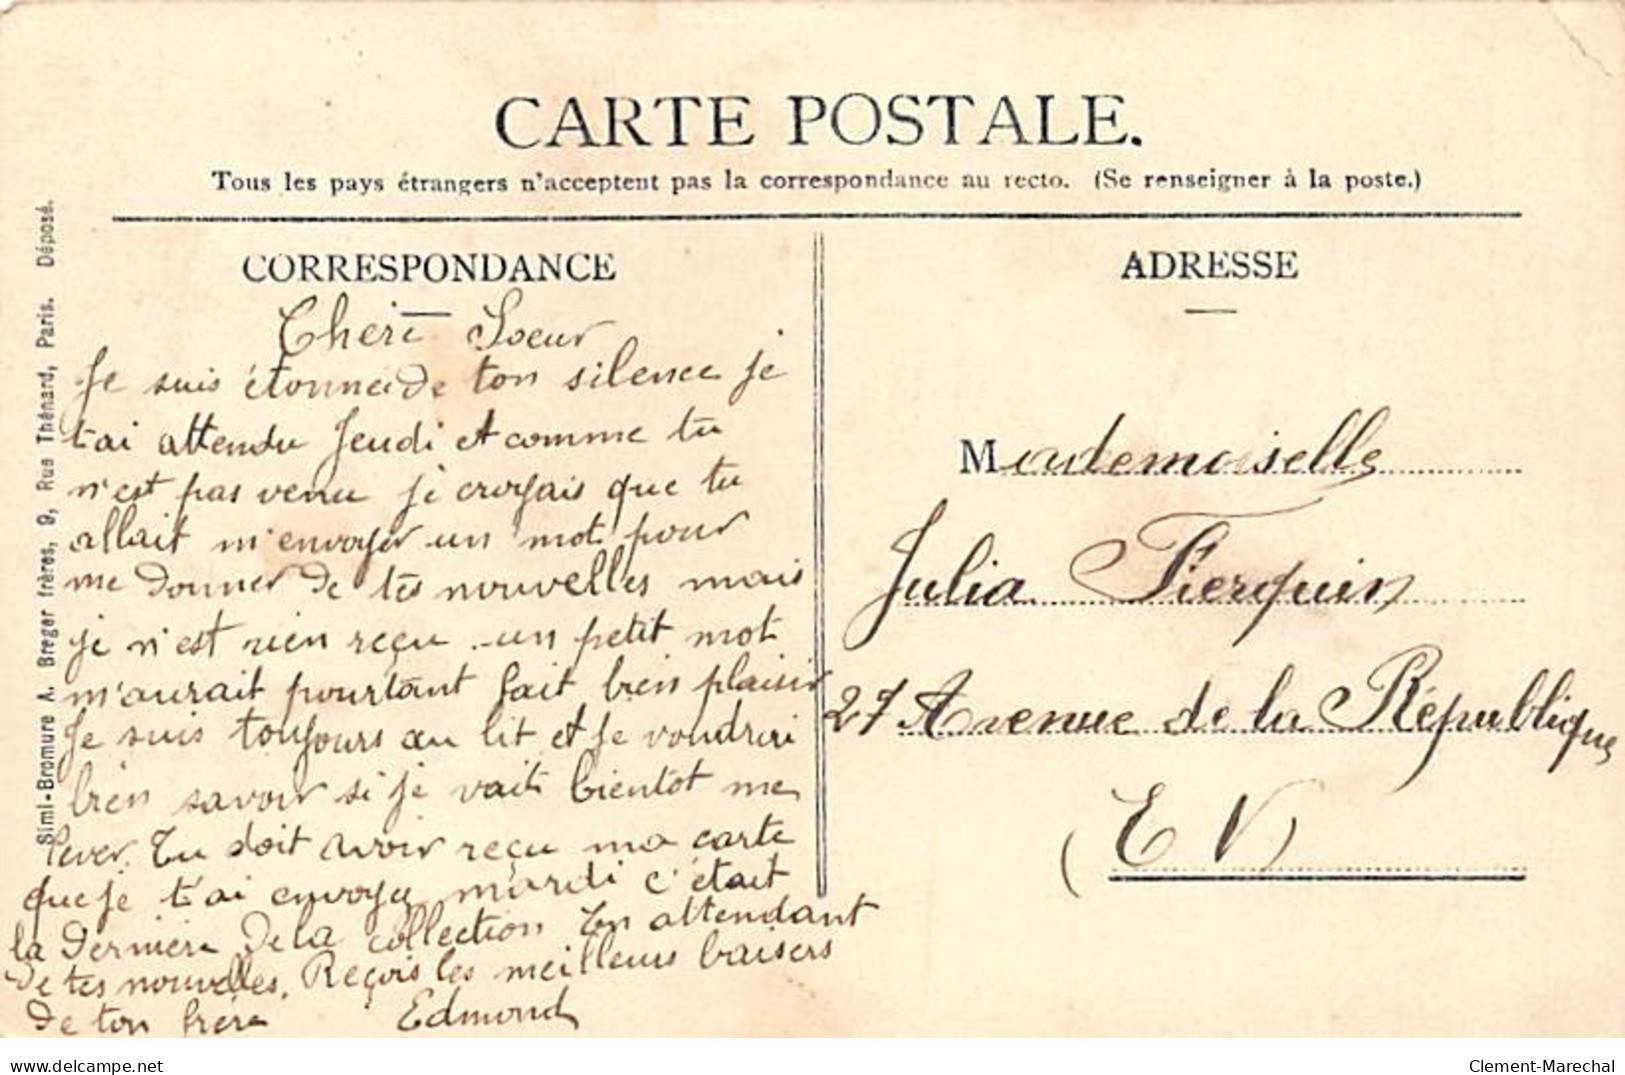 CARTE POSTALE.
Tous les pays étrangers n'acceptent pas la correspondance au recto. (Se renseigner à la poste.)
Simi-Bromure A. Breger frères, 9, Rue Thénard, Paris. Déposé.
CORRESPONDANCE
Cheri Soeur
Je suis étonné de ton silence je
t'ai attendu Jeudi et comme tu
n'est pas venu je croyais que tu
allait m'envoyer un mot pour
me donner de tes nouvelles mais
je n'est rien reçu un petit mot
m'aurait pourtant fait bien plaisir
Je suis toujours au lit et je voudrai
bien savoir si je vait bientot me
lever. Tu doit avoir reçu ma carte
que je t'ai envoyé mardi c'était
la dernière de la collection En attendant
de tes nouvelles. Reçois les meilleurs baisers
de ton frère Edmond
ADRESSE
Mademoiselle
Julia Fierquin
27 Avenue de la République
(E V)
delcampe.net
Clement-Marechal